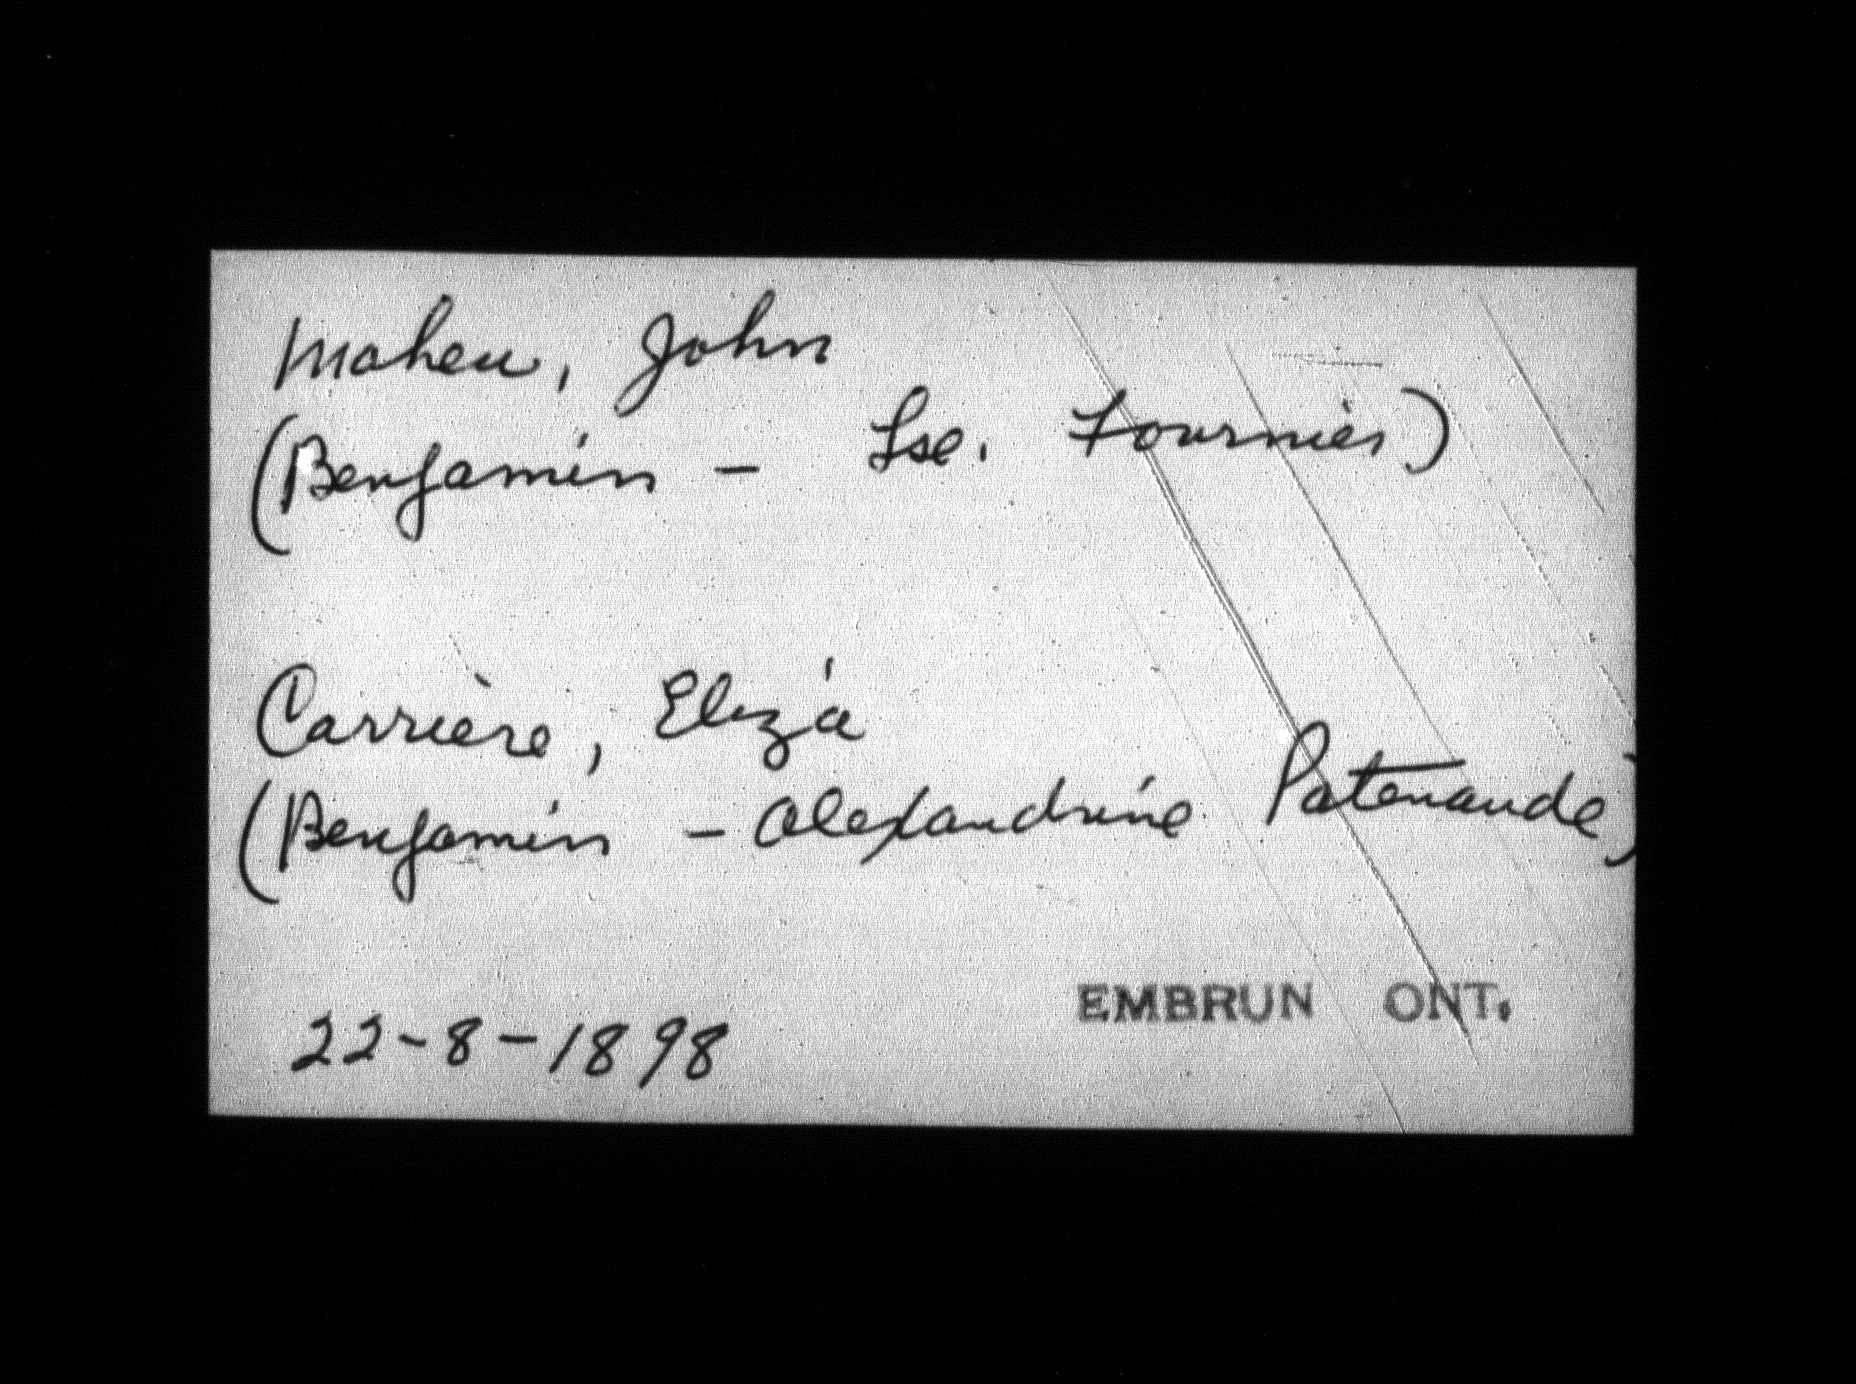 Maheu, John
(Benjamin - Lse. Fournier)
Carrière, Eliza
(Benjamin - Alexandrine Patenaude)
22-8-1898
EMBRUN ONT.